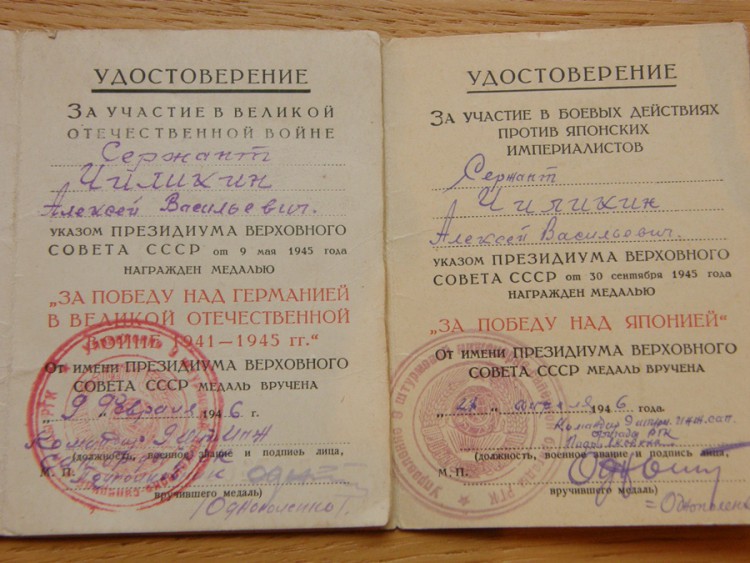 УДОСТОВЕРЕНИЕ
ЗА УЧАСТИЕ В ВЕЛИКОЙ
ОТЕЧЕСТВЕННОЙ ВОЙНЕ
Сержант
Чиликин
Алексей Васильевич.
УКАЗОМ ПРЕЗИДИУМА ВЕРХОВНОГО
СОВЕТА СССР от 9 мая 1945 года
НАГРАЖДЕН МЕДАЛЬЮ
„ЗА ПОБЕДУ НАД ГЕРМАНИЕЙ
В ВЕЛИКОЙ ОТЕЧЕСТВЕННОЙ
ВОЙНЕ 1941—1945 гг.“
ОТ ИМЕНИ ПРЕЗИДИУМА ВЕРХОВНОГО
СОВЕТА СССР МЕДАЛЬ ВРУЧЕНА
„9“ февраля 1946 г.
Командир 9
(должность, военное звание и подпись лица,
М. П. Подполковник
вручившего медаль)
(Однополенко).
УДОСТОВЕРЕНИЕ
ЗА УЧАСТИЕ В БОЕВЫХ ДЕЙСТВИЯХ
ПРОТИВ ЯПОНСКИХ
ИМПЕРИАЛИСТОВ
Сержант
Чиликин
Алексей Васильевич.
УКАЗОМ ПРЕЗИДИУМА ВЕРХОВНОГО
СОВЕТА СССР от 30 сентября 1945 года
НАГРАЖДЕН МЕДАЛЬЮ
„ЗА ПОБЕДУ НАД ЯПОНИЕЙ“
ОТ ИМЕНИ ПРЕЗИДИУМА ВЕРХОВНОГО
СОВЕТА СССР МЕДАЛЬ ВРУЧЕНА
апреля 1946 года.
Командир 9 штурм. инж. сап.
бригады РГК
(должность, военное звание и подпись лица,
М. П.
вручившего медаль)